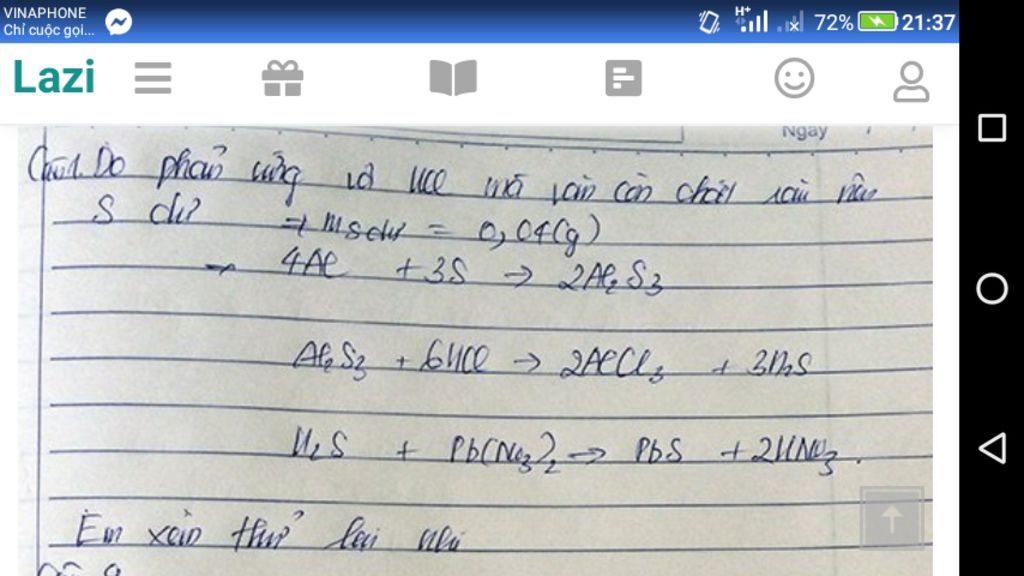 VINAPHONE
Chỉ cuộc gọi...
H+
72%
21:37
Lazi
Ngày
Câu1. Do phản ứng với HCl mà vẫn còn chất rắn nên
S dư
=> mS dư = 0,04(g)
4Al + 3S → 2Al2S3
Al2S3 + 6HCl → 2AlCl3 + 3H2S
H2S + Pb(NO3)2 → PbS + 2HNO3.
Em xem thử lại nhé